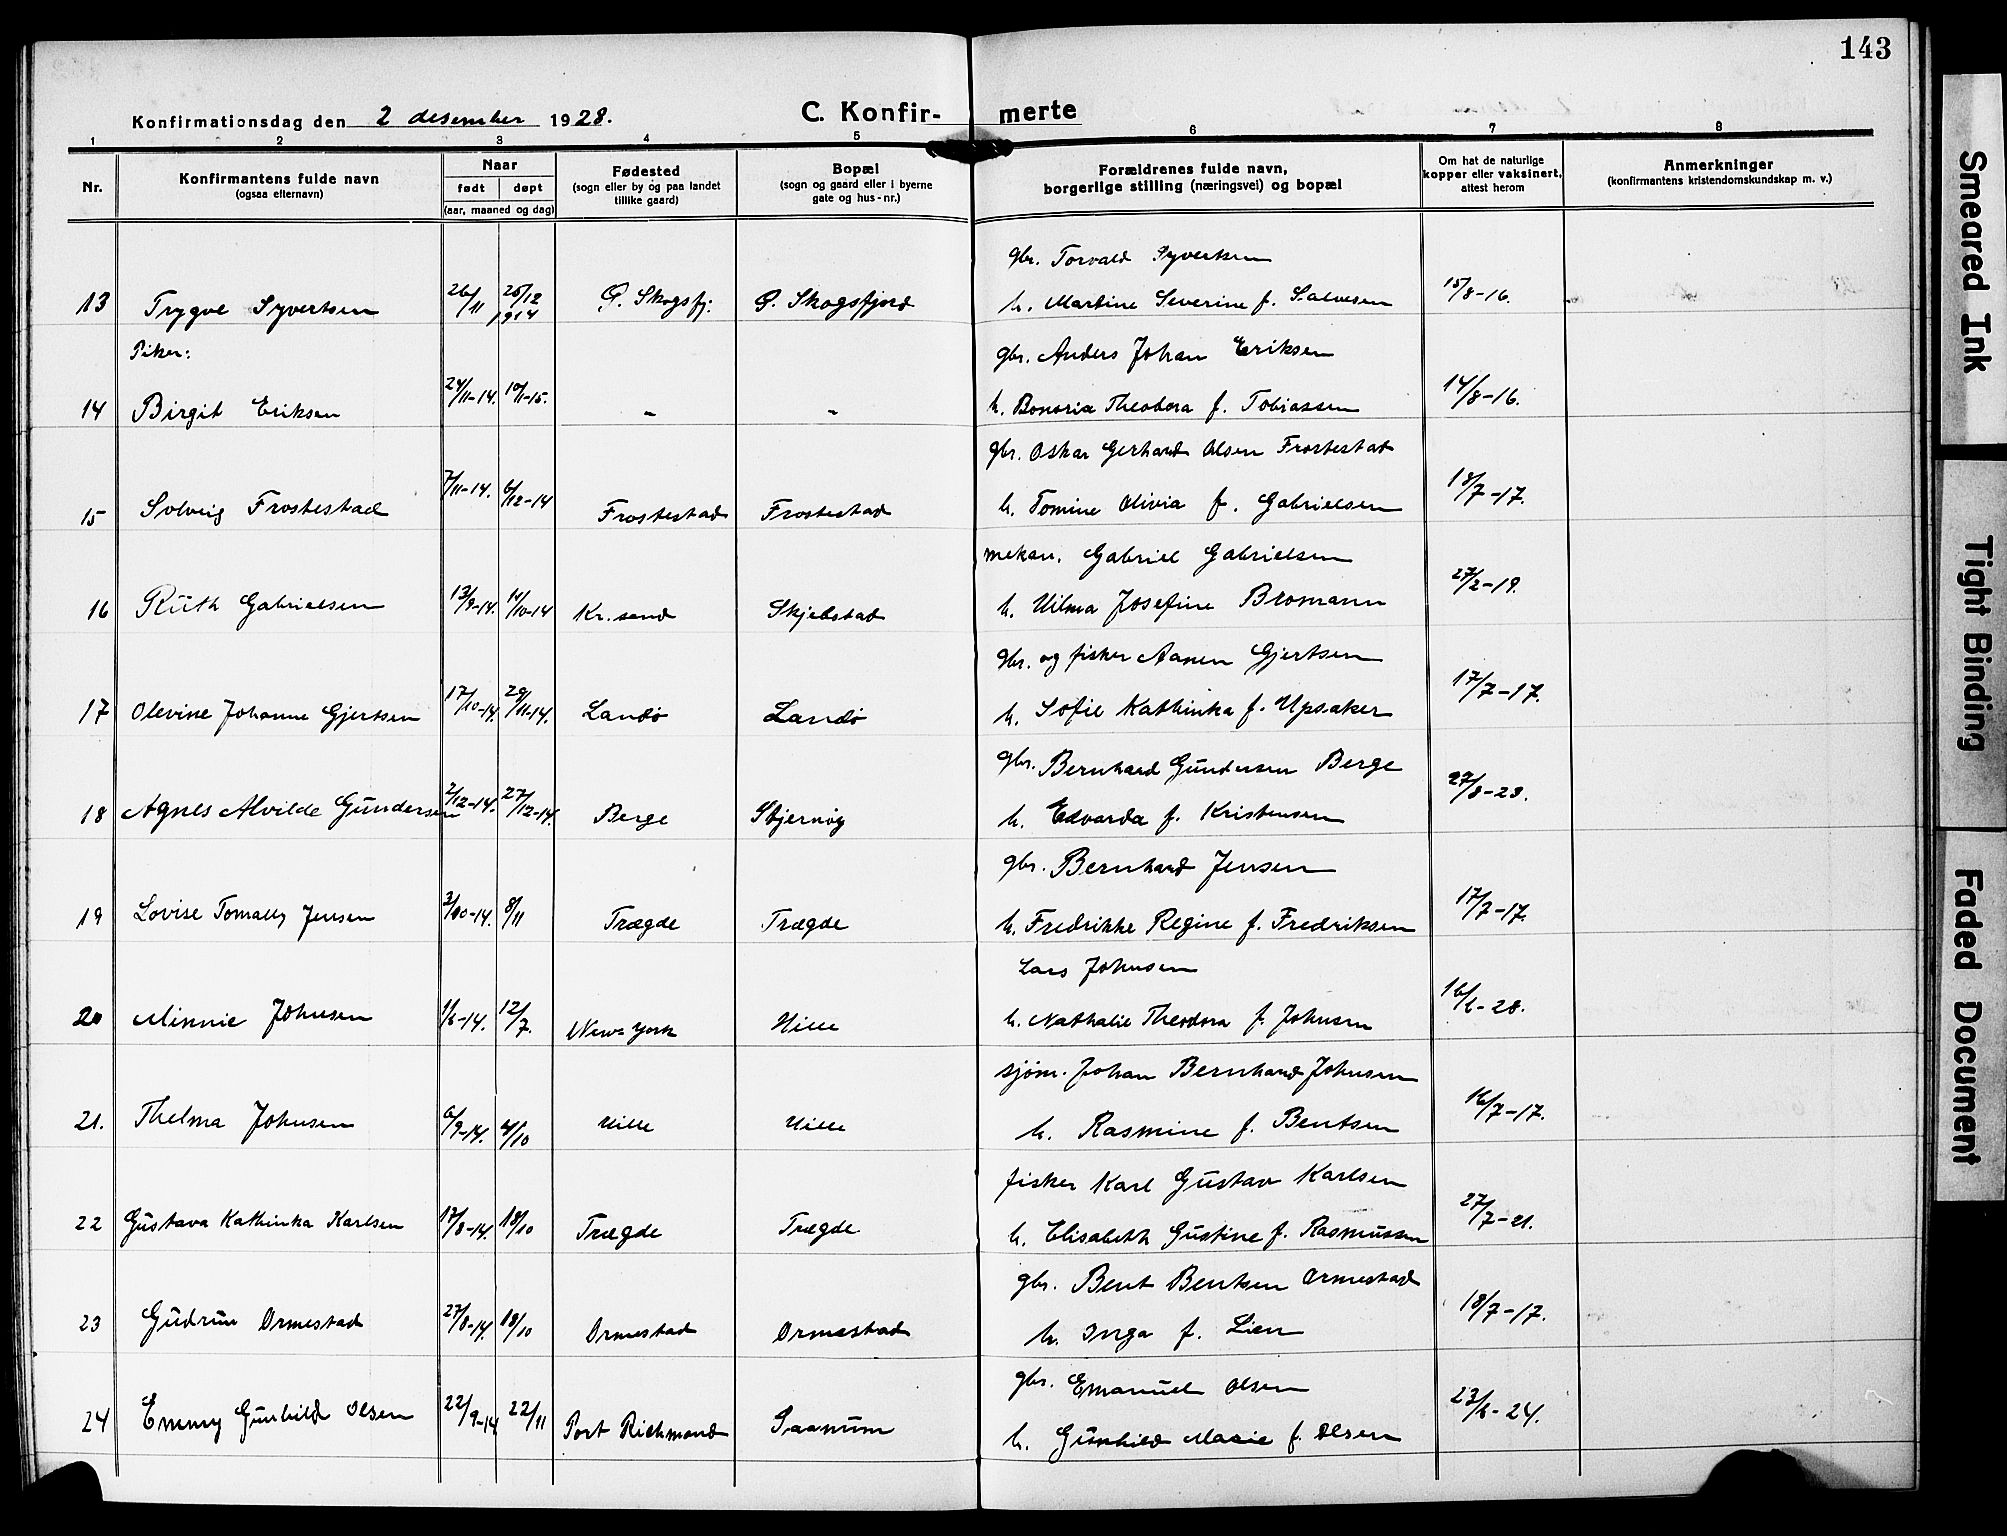 143
Konfirmationsdag den 2 desember 1928.
C. Konfir-merte
1 2 3 4 5 6 7 8
Nr.
Konfirmantens fulde navn
(ogsaa efternavn)
Naar
født døpt
(aar, maaned og dag)
Fødested
(sogn eller by og paa landet
tillike gaard)
Bopæl
(sogn og gaard eller i byerne
gate og hus-nr.)
Forældrenes fulde navn,
borgerlige stilling (næringsvei) og bopæl
Om hat de naturlige
kopper eller vaksinert,
attest herom
Anmerkninger
(konfirmantens kristendomskundskap m. v.)
gbr. Torvald Syvertsen
13 Trygve Syvertsen 26/11 26/12 1914 Ø. Skogsfj. Ø. Skogsfjord h. Martine Severine f. Salvesen 15/8-16.
Piker:
gbr. Anders Johan Eriksen
14 Birgit Eriksen 24/11-14. 10/1-15. " " h. Bonoria Theodora f. Tobiassen 14/8-16.
gbr. Oskar Gerhard Olsen Frostestad
15 Solveig Frostestad 7/11-14. 6/12-14 Frostestad Frostestad h. Tomine Olivia f. Gabrielsen 18/7-17.
mekan. Gabriel Gabrielsen
16 Ruth Gabrielsen 13/9-14. 14/10-14 Kr.sand Skjebstad h. Vilma Josefine Bromann 27/2-19.
gbr. og fisker Aanen Gjertsen
17 Olevine Johanne Gjertsen 17/10-14. 29/11-14. Landø Landø h. Sofie Kathinka f. Upsaker 17/7-17.
gbr. Bernhard Gundersen Berge
18 Agnes Alvilde Gundersen 2/12-14. 27/12-14. Berge Stjernøy h. Edvarda f. Kristensen 27/8-23.
gbr. Bernhard Jensen
19 Lovise Tomally Jensen 3/10-14. 8/11 Trægde Trægde h. Fredrikke Regine f. Fredriksen 17/7-17.
Lars Johnsen
20 Minnie Johnsen 1/6-14. 12/7. New-York Hille h. Nathalie Theodora f. Johnsen 16/6-28.
sjøm. Johan Bernhard Johnsen
21. Thelma Johnsen 6/9-14. 4/10 Hille Hille h. Rasmine f. Bentsen 16/7-17.
fisker Karl Gustav Karlsen
22 Gustava Kathinka Karlsen 17/8-14. 18/10 Trægde Trægde h. Elisabeth Gustine f. Rasmussen 27/7-21.
gbr. Bent Bentsen Ormestad
23 Gudrun Ormestad 27/8-14. 18/10 Ormestad Ormestad h. Inga f. Lien 18/7-17.
gbr. Emanuel Olsen
24 Emmy Gunhild Olsen 22/9-14 22/11 Port Richmond Saanum h. Gunhild Marie f. Olsen 23/6-24.
Smeared Ink
Tight Binding
Faded Document